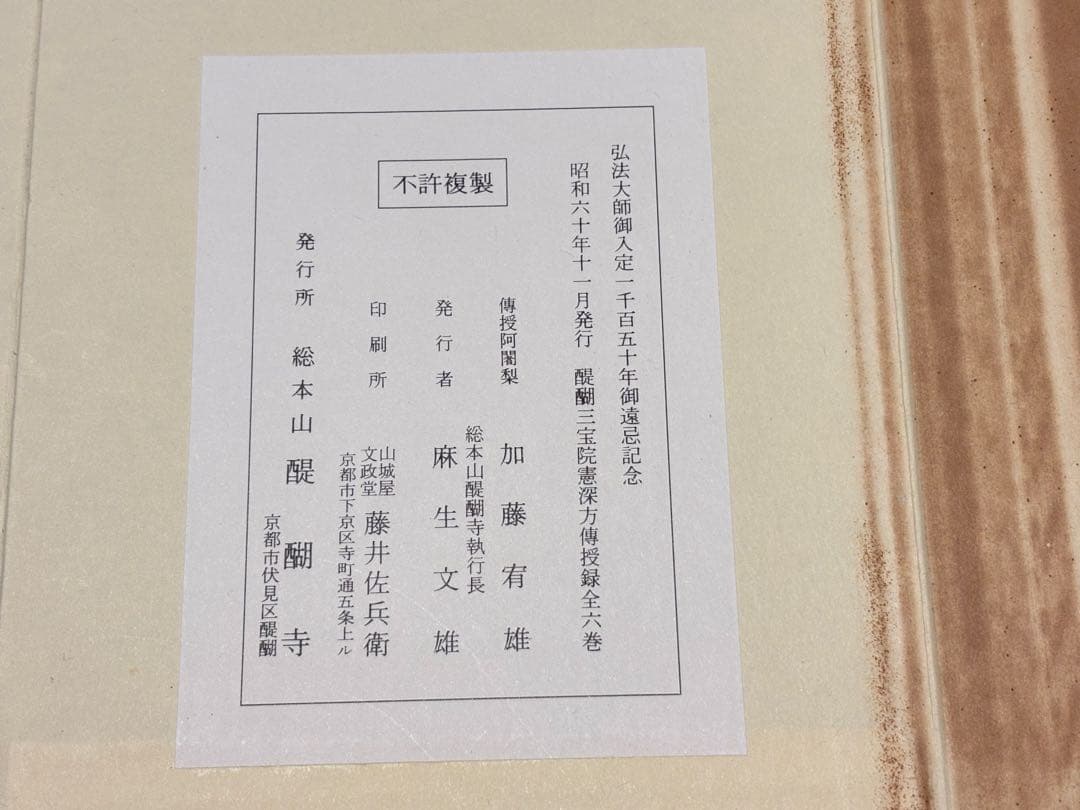 弘法大師御入定一千百五十年御遠忌記念
昭和六十年十一月発行　醍醐三宝院憲深方傳授録全六巻
傳授阿闍梨　加藤宥雄
総本山醍醐寺執行長
発行者　麻生文雄
不許複製
印刷所　山城屋文政堂　藤井佐兵衛
京都市下京区寺町通五条上ル
発行所　総本山醍醐寺
京都市伏見区醍醐